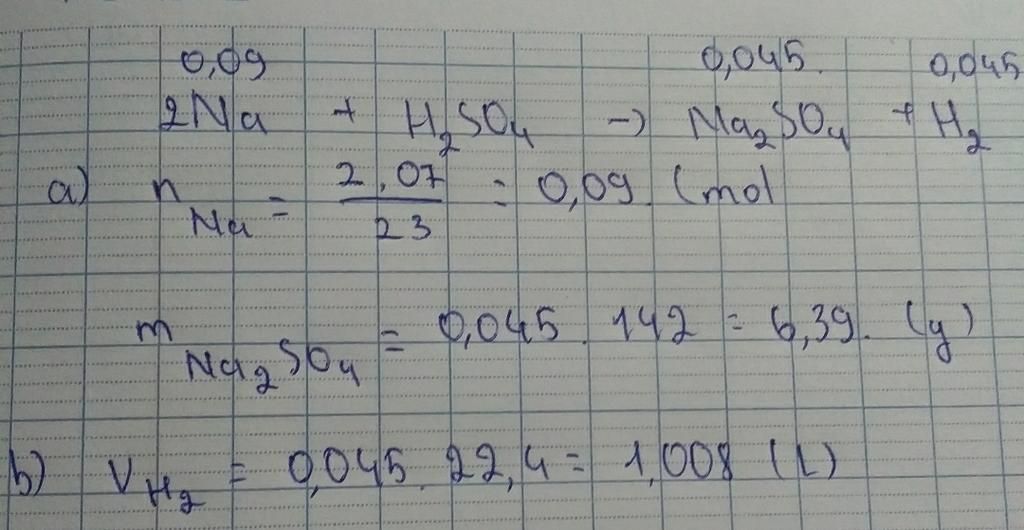 0,09 0,045 0,045
2Na + H₂SO₄ → Na₂SO₄ + H₂
a) n Na = 2,07 / 23 = 0,09 (mol
m Na₂SO₄ = 0,045 . 142 = 6,39 . (g)
b) V H₂ = 0,045 . 22,4 = 1,008 (L)